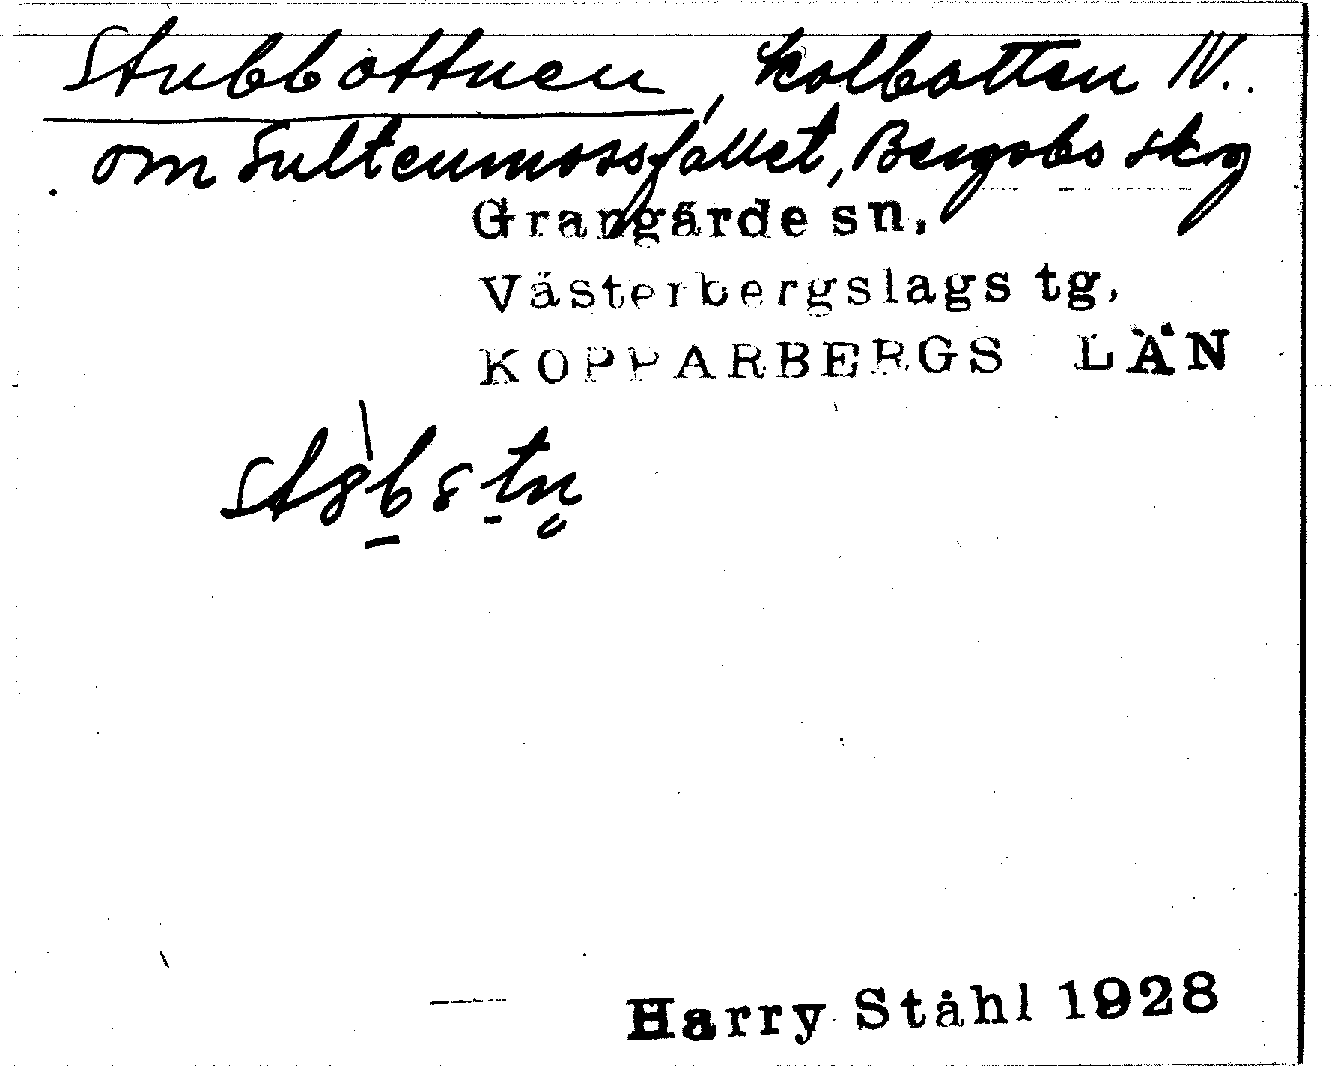 Stubbottnen, kolbotten N..
om Sultenmossfallet, Bergsbo skg
Grangärde sn.
Västerbergslags tg.
KOPPARBERGS LÄN
Harry Ståhl 1928